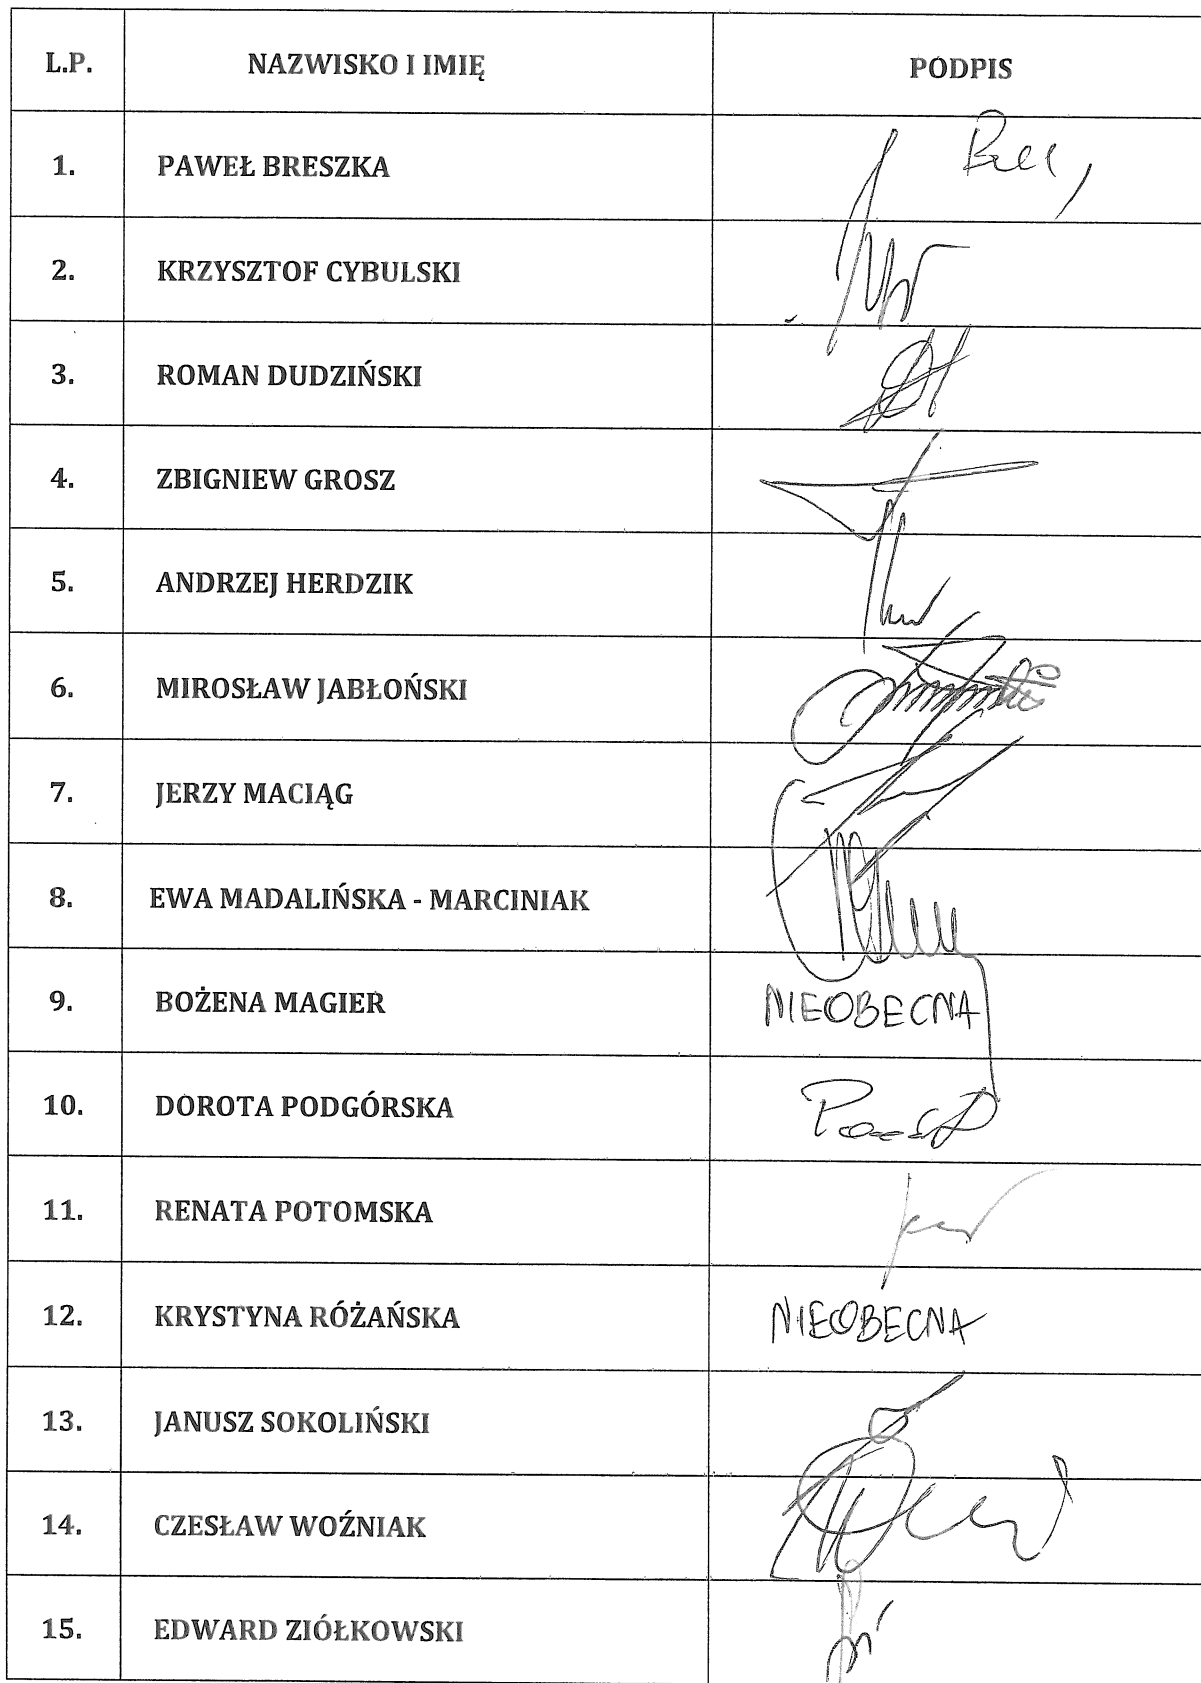 L.P. NAZWISKO I IMIĘ PODPIS
1. PAWEŁ BRESZKA
2. KRZYSZTOF CYBULSKI
3. ROMAN DUDZIŃSKI
4. ZBIGNIEW GROSZ
5. ANDRZEJ HERDZIK
6. MIROSŁAW JABŁOŃSKI
7. JERZY MACIĄG
8. EWA MADALIŃSKA - MARCINIAK
9. BOŻENA MAGIER NIEOBECNA
10. DOROTA PODGÓRSKA
11. RENATA POTOMSKA
12. KRYSTYNA RÓŻAŃSKA NIEOBECNA
13. JANUSZ SOKOLIŃSKI
14. CZESŁAW WOŹNIAK
15. EDWARD ZIÓŁKOWSKI